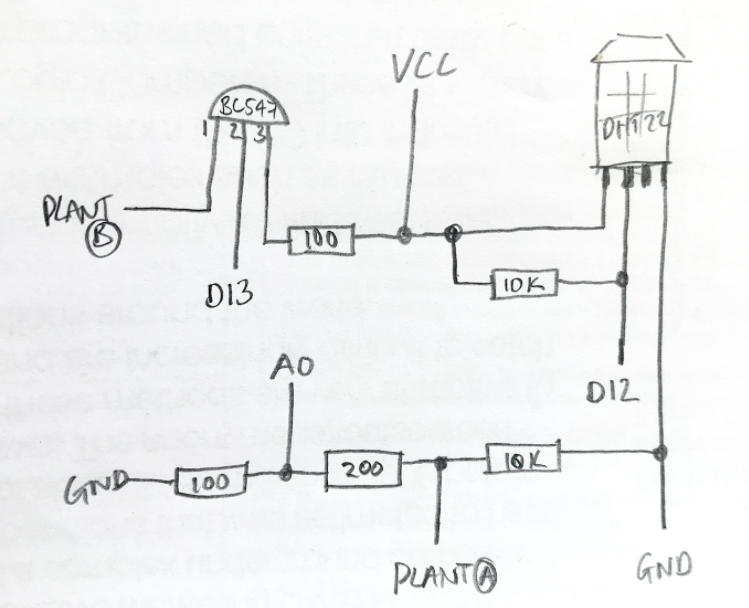 VCC
BC547
1 2 3
DHT22
PLANT
B
100
10K
D13
A0
D12
GND
100
200
10K
PLANT A
GND